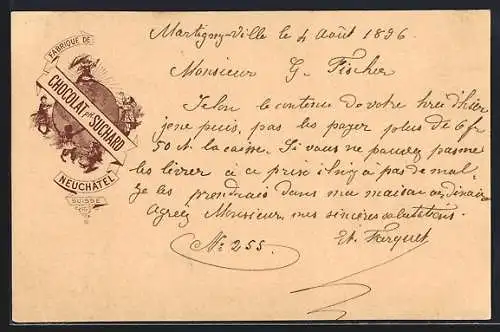 FABRIQUE DE
CHOCOLAT PH. SUCHARD
NEUCHÂTEL
SUISSE
Martigny-Ville le 4 Août 1896.
Monsieur G. Fischer
Selon le contenu de votre hier
je ne puis, pas les payer plus de 6 fr
50 ct. la caisse. Si vous ne pouvez pas me
les livrer à ce prix il n'y a pas de mal.
Je les prendrais dans ma maison ordinaire
Agreez Monsieur mes sincères salutations.
No 255.